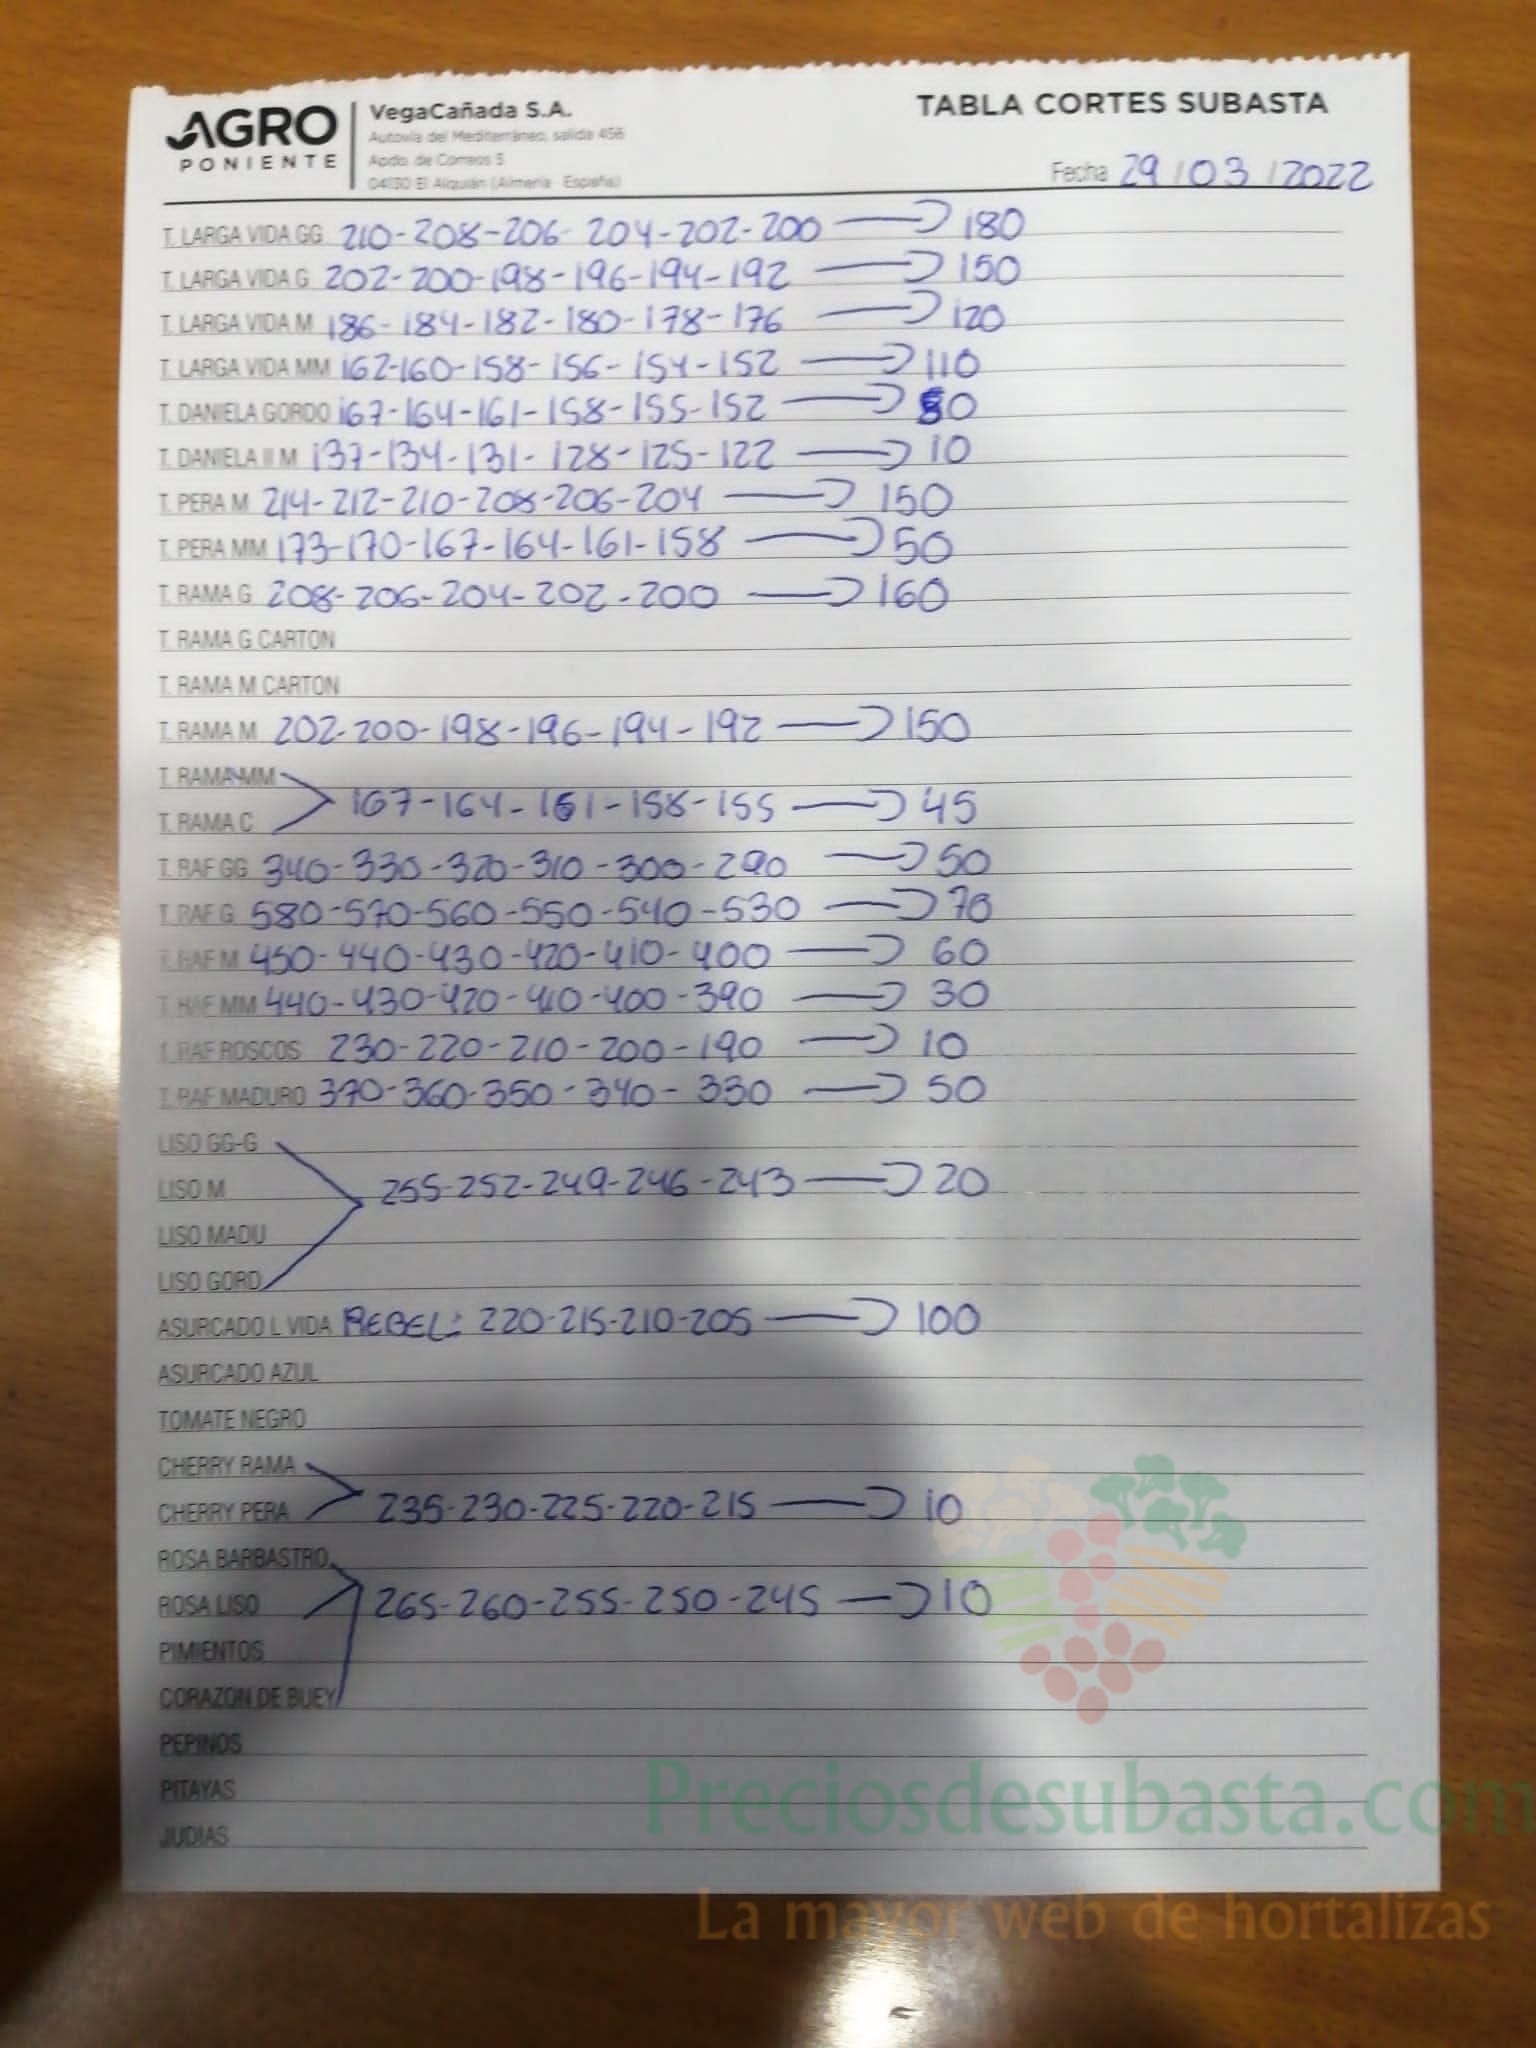 AGRO PONIENTE
VegaCañada S.A.
Autovía del Mediterráneo, salida 456
Apdo. de Correos 5
04130 El Alquián (Almería - España)
TABLA CORTES SUBASTA
Fecha 29/03/2022
T. LARGA VIDA GG 210-208-206-204-202-200 → 180
T. LARGA VIDA G 202-200-198-196-194-192 → 150
T. LARGA VIDA M 186-184-182-180-178-176 → 120
T. LARGA VIDA MM 162-160-158-156-154-152 → 110
T. DANIELA GORDO 167-164-161-158-155-152 →
T. DANIELA II M 137-134-131-128-125-122 → 10
T. PERA M 214-212-210-208-206-204 → 150
T. PERA MM 173-170-167-164-161-158 → 50
T. RAMA G 208-206-204-202-200 → 160
T. RAMA G CARTON
T. RAMA M CARTON
T. RAMA M 202-200-198-196-194-192 → 150
T. RAMA MM
167-164-161-158-155 → 45
T. RAMA C
T. RAF GG 340-330-320-310-300-290 → 50
T. RAF G 580-570-560-550-540-530 → 70
T. RAF M 450-440-430-420-410-400 → 60
T. RAF MM 440-430-420-410-400-390 → 30
T. RAF ROSCOS 230-220-210-200-190 → 10
T. RAF MADURO 370-360-350-340-330 → 50
LISO GG-G
LISO M 255-252-249-246-243 → 20
LISO MADU
LISO GORD
ASURCADO L VIDA REBEL: 220-215-210-205 → 100
ASURCADO AZUL
TOMATE NEGRO
CHERRY RAMA
CHERRY PERA 235-230-225-220-215 → 10
ROSA BARBASTRO
ROSA LISO 265-260-255-250-245 → 10
PIMIENTOS
CORAZON DE BUEY
PEPINOS
PITAYAS
JUDIAS
Preciosdesubasta.com
La mayor web de hortalizas